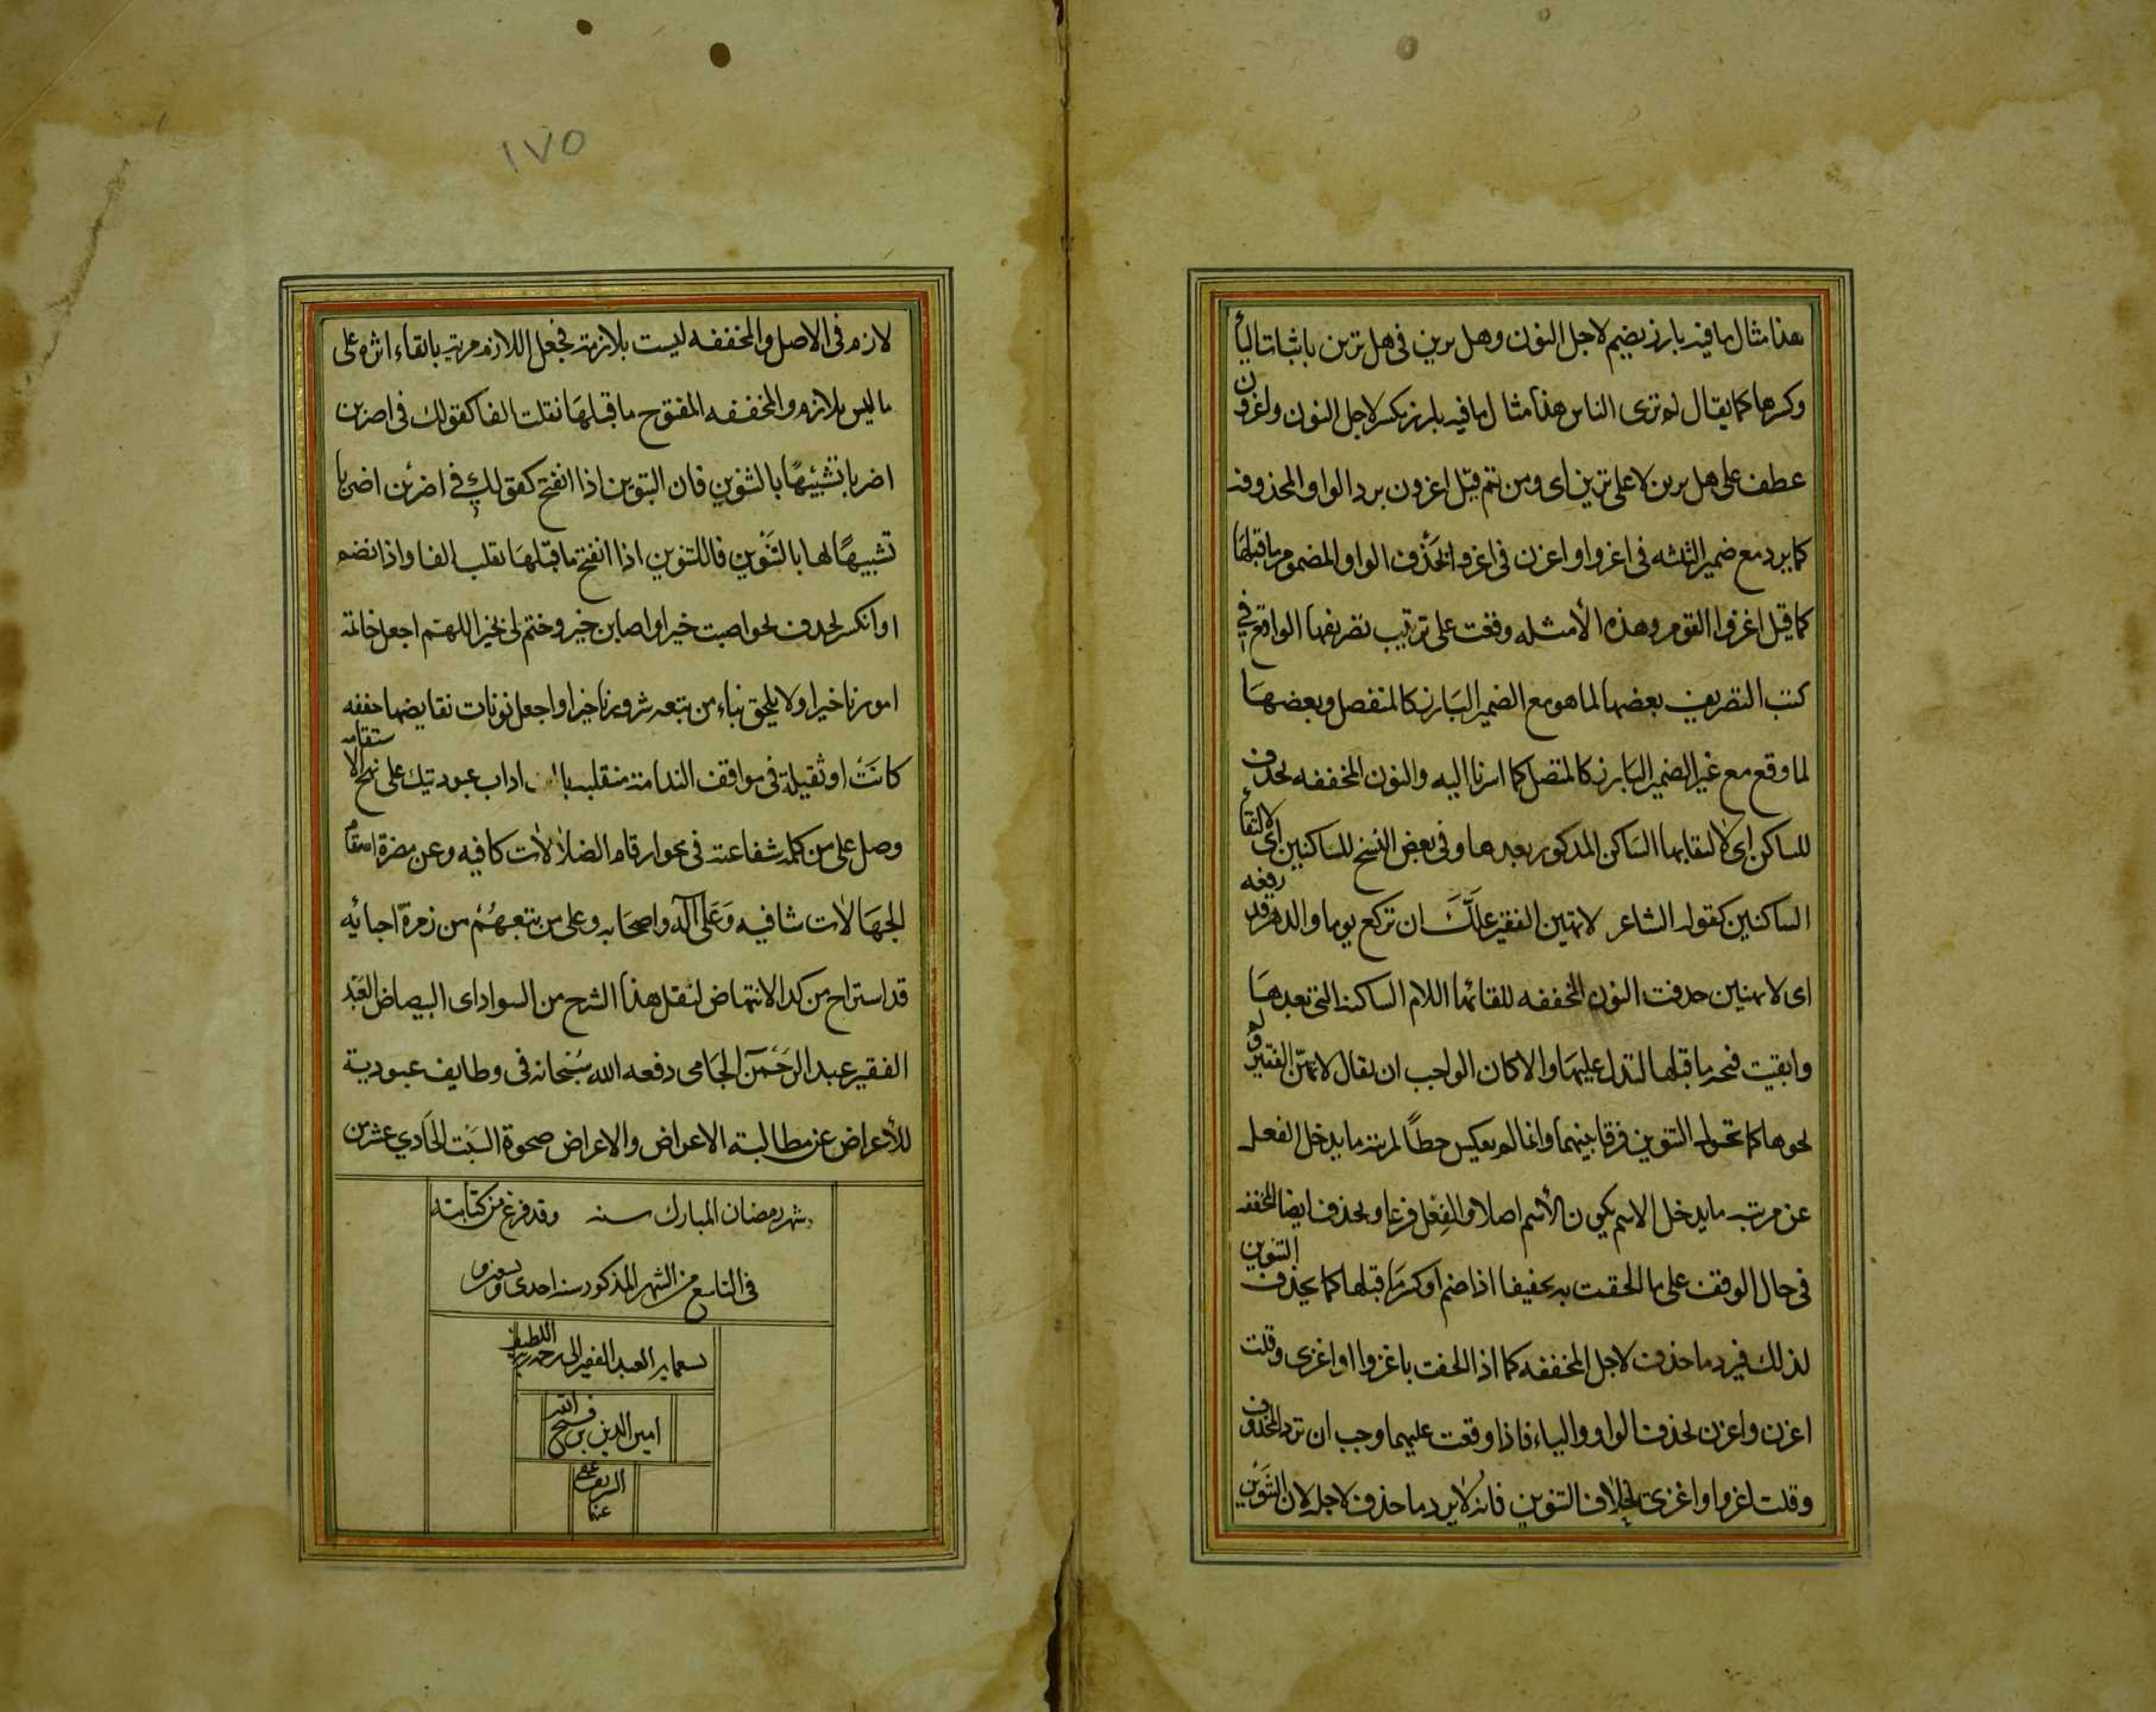 هذا مثال ما فيه بارز يضم لاجل النون وهل يرين في هل ترين باثبات اليأ
وكسرها كما يقال لم ترى الناس هذا مثال ما فيه بارز يكسر لاجل النون واغزون
عطف على هل يرين لا على ترين اى ومن ثم قيل اغزون برد الواو المحذوفة
كما يرد مع ضمير التثنيه في اغزوا واغزن في اغزوا بحذف الواو المضموم ما قبلها
كما قيل اغزوا القوم وهذه الأمثله وقعت على ترتيب تصريفها الواقع في
كتب التصريف بعضها لما هو مع الضمير البارز كالمنفصل وبعضها
لما وقع مع غير الضمير البارز كالمتصل كما اشرنا اليه والنون المخففه تحذف
للساكن اى لالتقايها الساكن المذكور بعدها وفي بعض النسخ للساكنين اى لالتقاء
الساكنين كقول الشاعر لا تهين الفقير علك ان تركع يوما والدهر قد رفعه
اى لا تهينن حذفت النون المخففه للقائها اللام الساكنة التي بعدها
وابقيت فتحة ما قبلها لتدل عليها والا كان الواجب ان يقال لا تهن الفقير ولم
تحوها كما تحول التنوين فرقا بينهما وانما لم يعكس حطاً لمرتبة ما يدخل الفعل
عن مرتبه ما يدخل الاسم يكون الأسم اصلا والفعل فرعا وتحذف ايضا المخففه
في حال الوقف على ما لحقت به تخفيفا اذا ضم او كسر ما قبلها كما يحذف التنوين
لذلك فيرد ما حذف لاجل المخففه كما اذا الحقت باغزوا او اغزى وقلت
اغزن واغزن بحذف الواو والياء فاذا وقعت عليهما وجب ان ترد المحذوف
وقلت اغزوا واغزى بخلاف التنوين فانه لا يرد ما حذف لاجله لان التنوين
١٧٥
لازم في الاصل والمخففه ليست بلازمة فجعل اللازم مزية بابقاء اثره على
ما ليس بلازم والمخففه المفتوح ما قبلها تقلب الفا كقولك في اضربن
اضربا تشبيهًا بالتنوين فان التنوين اذا انفتح كقولك في اضربن اضربا
تشبيهًا لها بالتنوين فالتنوين اذا انفتح ما قبلها تقلب الفا واذا نضم
او انكسر تحذف نحو اصبت خيرا واصابن خير وختم لى بخير اللهم اجعل خاتمة
امورنا خيرا ولا يلحق بناء من تبعة شرورنا خيرا واجعل نونات نقايضها خففه
كانت او ثقيلة في مواقف الندامة منقلبة با اداب عبوديتك على نهج الاستقامه
وصل على من كلمة شفاعته في محو ارقام الضلالات كافيه وعن مضرة اسقام
الجهالات شافيه وعلى آله واصحابه وعلى من يتبعهم من زمرة احبائه
قد استراح من كد الانتهاض لنقل هذا الشرح من السواد اى البيصاض العبد
الفقير عبد الرحمن الجامى دفعه الله سبحانه في وظايف عبودية
للأعراض عن مطالبته الاعراض والاعراض ضحوة السبت الحادي عشر من
شهر رمضان المبارك سنه وقد فرغ من كتابته
في التاسع من الشهر المذكور سنه احدى
العبد الفقير الى رحمة ربه اللطيف
امين الدين بن فتح الله
الشريف عفى
عنهما